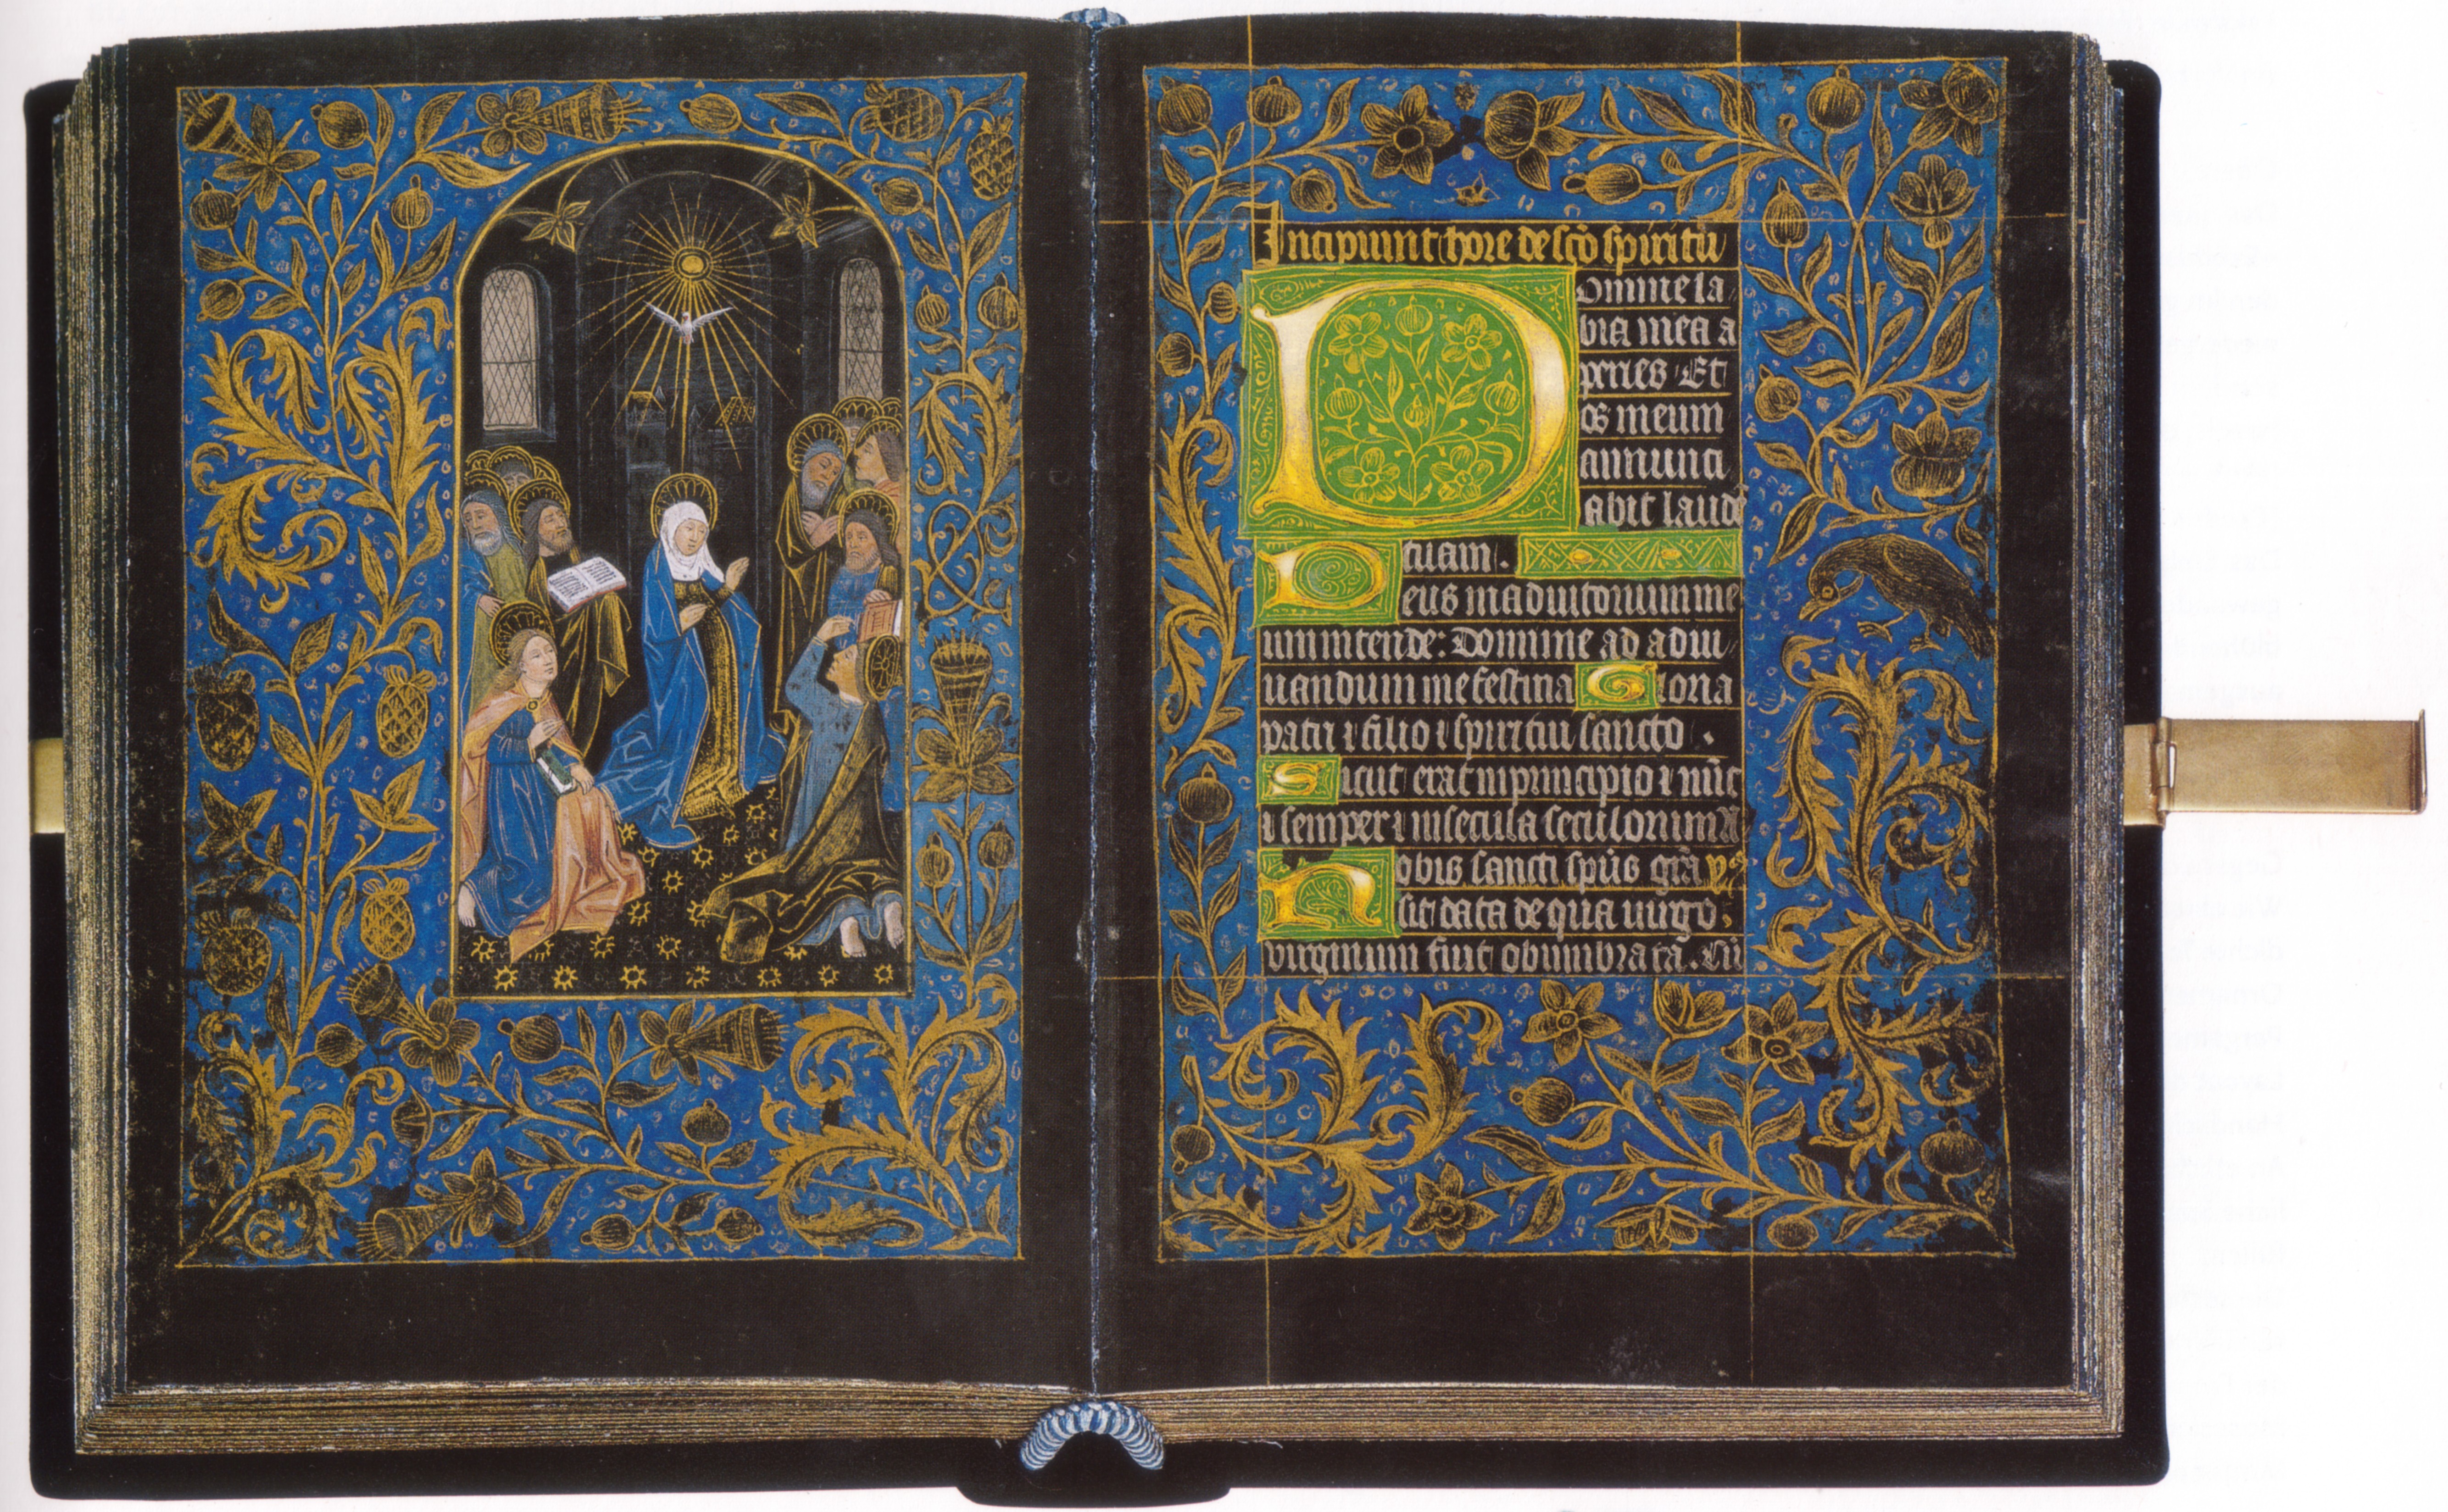 Incipiunt hore de sco̅ spiritu
Domine la
bia mea a
peries Et
os meum
annunci
abit laude̅
tuam.
Deus in adiutorium me
um intende: Domine ad adiu
uandum me festina Gloria
patri ⁊ filio ⁊ spiritui sancto.
Sicut erat in principio ⁊ nu̅c
⁊ semper ⁊ in secula seculorum
Nobis sancti sp̅us gr̅a
sit data de qua uirgo
virginum fuit obumbrata. Cu̅